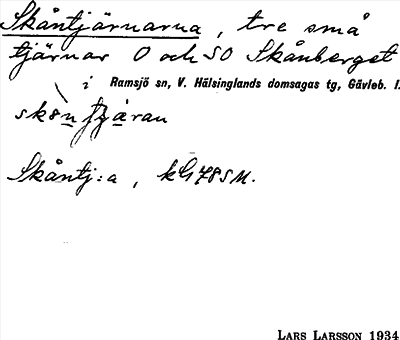 Skåntjärnarna, tre små
tjärnar O och SO Skånberget
i Ramsjö sn, V. Hälsinglands domsagas tg, Gävleb. l.
Skåntj:a, kG 78 SM.
LARS LARSSON 1934